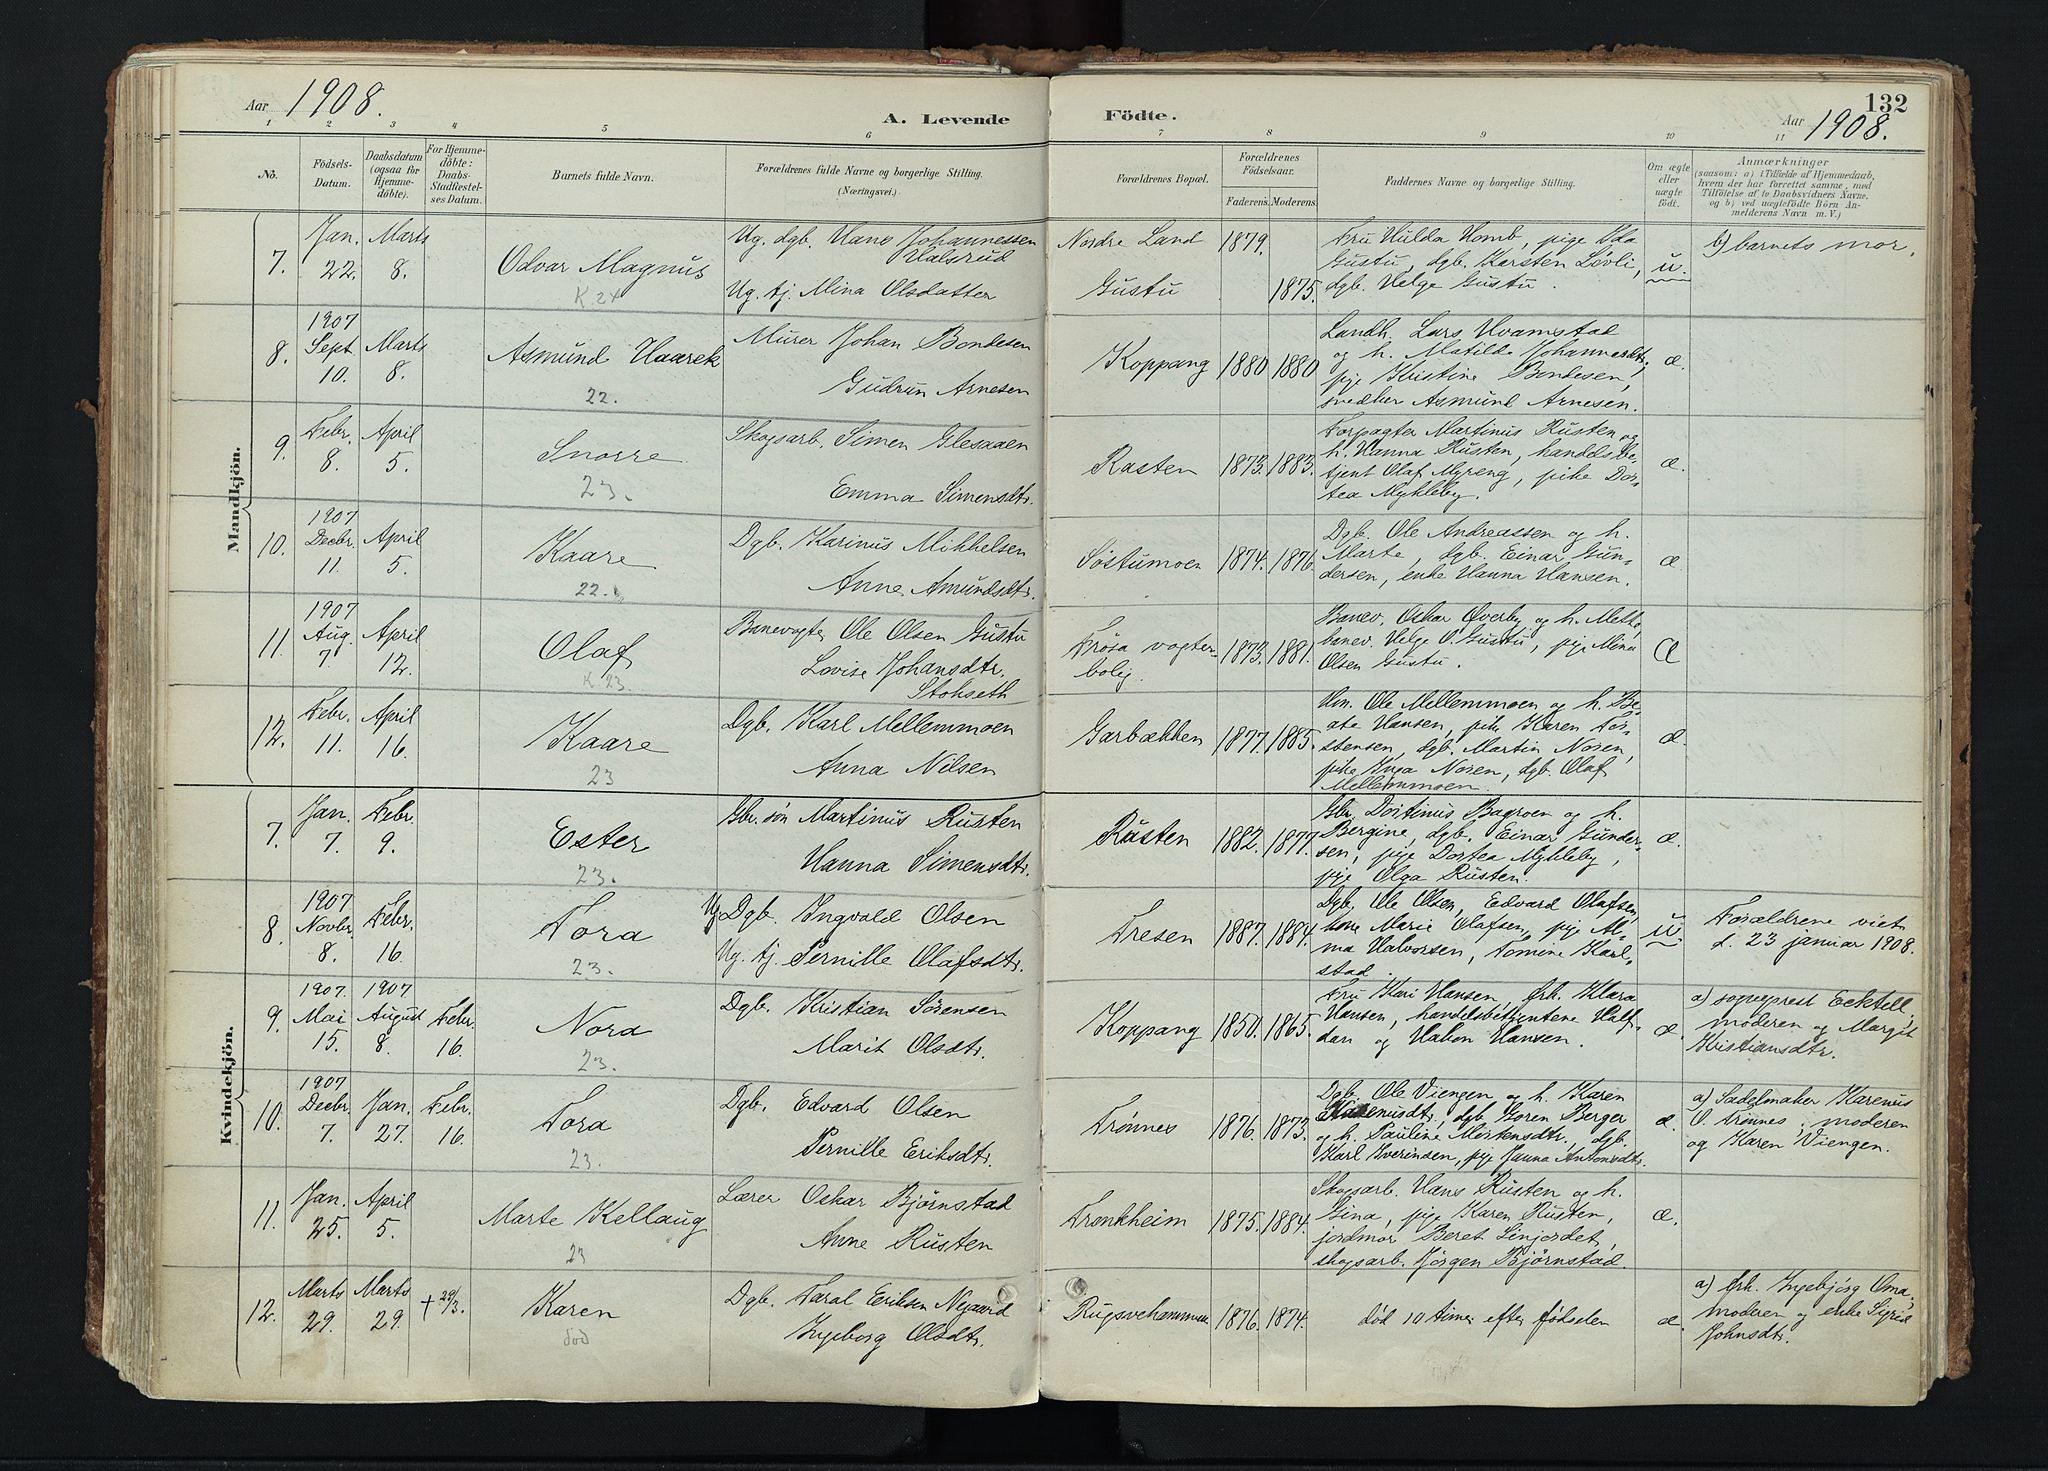 Aar 1908.
A. Levende Födte.
132
Aar 1908.
1 2 3 4 5 6 7 8 9 10 11
No.
Födsels-Datum.
Daabsdatum (ogsaa for Hjemme-döbte).
For Hjemme-döbte: Daabs-Stadfæstel-ses Datum.
Barnets fulde Navn.
Forældrenes fulde Navne og borgerlige Stilling. (Næringsvei.)
Forældrenes Bopæl.
Forældrenes Födselsaar.
Faderens. Moderens.
Faddernes Navne og borgerlige Stilling.
Om ægte eller uægte födt.
Anmærkninger
(saasom: a) i Tilfælde af Hjemmedaab,
hvem der har forrettet samme, med
Tilföielse af to Daabsvidners Navne,
og b) ved uægtefödte Börn An-
melderens Navn m. V.)
Mandkjön.
7. Jan. 22. Marts 8. Odvar Magnus K 24
Ug. dgb. Hans Johannessen
Halsrud
Ug. tj. Mina Olsdatter
Nordre Land 1879.
Gustu 1875.
Fru Hulda Homb, pige Ida
Gustu, dgb. Karsten Løvli,
dgb. Helge Gustu.
u.
b) barnets mor.
8. 1907 Sept. 10. Marts 8. Asmund Haarek 22.
Murer Johan Bondesen
Gudrun Arnesen
Koppang 1880 1880
Landh. Lars Hvamstad
og h. Matilde Johannesdtr,
pige Kristine Bondesen,
snedker Asmund Arnesen.
æ.
9. Febr. 8. April 5. Snorre 23.
Skogsarb. Simen Glesaaen
Emma Simensdtr.
Rasten 1873. 1883.
Forpagter Martinus Rusten og
h. Hanna Rusten, handelsbe-
tjent Olaf Myreng, pike Dor-
tea Mykleby.
æ.
10. 1907 Decbr. 11. April 5. Kaare 22.
Dgb. Karinus Mikkelsen
Anne Amundsdtr.
Søstumoen 1874. 1876.
Dgb. Ole Andreassen og h.
Marte, dgb. Einar Gun-
dersen, enke Hanna Hansen.
æ
11. 1907 Aug. 7. April 12. Olaf K 23.
Banevogter Ole Olsen Gustu
Lovise Johansdtr.
Stokseth
Frøsa vogter-
bolig. 1873. 1881.
Banev. Oskar Øverby og h. Mette,
banev. Helge O. Gustu, pige Mina
Olsen Gustu.
Æ
12. Febr. 11. April 16. Kaare 23
Dgb. Karl Mellemmoen
Anna Nilsen
Garbækken 1877. 1885.
Hm. Ole Mellemmoen og h. Be-
ate Hansen, pike Karen Tor-
stensen, dgb. Martin Noren,
pike Inga Noren, dgb. Olaf
Mellemmoen.
æ.
Kvindekjön.
7. Jan. 7. Febr. 9. Ester 23.
Gbr. søn Martinus Rusten
Hanna Simensdtr.
Rusten 1882. 1877.
Gbr. Dortinus Bagroen og h.
Bergine, dgb. Einar Gunder-
sen, pige Dortea Mykleby,
pige Olga Rusten.
æ.
8. 1907 Novbr. 8. Febr. 16. Tora 23.
Ug Dgb. Ingvald Olsen
Ug. tj. Pernille Olafsdtr.
Tresen 1887. 1884.
Dgb. Ole Olsen, Edvard Olafsen,
kone Marie Olafsen, pige Al-
ma Halvorsen, Tomine Karl-
stad.
u
Forældrene viet
d. 23 januar 1908.
9. 1907. Mai 15. 1907 August 8. Febr. 16. Nora 23.
Dgb. Kristian Sørensen
Marit Olsdtr.
Koppang 1850. 1865.
Fru Kari Hansen, frk. Klara
Hansen, handelsbetjentene Half-
dan og Hakon Hansen.
æ.
a) sogneprest Ecktell,
moderen og Margit
Kristiansdtr.
10. 1907 Decbr. 7. Jan. 27. Febr. 16. Tora 23.
Dgb. Edvard Olsen
Pernille Eriksdtr.
Trønnes 1876. 1873.
Dgb. Ole Viengen og h. Karen
Karenusdtr, dgb. Loren Berger
og h. Pauline Mortensdtr., dgb.
Karl Iverinsen, pige Janna Antonsdtr.
æ.
a) Sadelmaker Karenus
O. Trønnes, moderen
og Karen Viengen.
11. Jan. 25. April 5. Marte Kellaug 23
Lærer Oskar Bjørnstad
Anne Rusten
Tronkheim 1875. 1884.
Skogsarb. Hans Rusten og h.
Gina, pige Karen Rusten,
jordmor Beret Linjordet,
skogsarb. Jørgen Bjørnstad.
æ.
12. Marts 29. Marts 29. + 29/3. Karen død
Dgb. Taral Eriksen Nygaard
Ingeborg Olsdtr.
Rugsvehammeren 1876. 1874.
død 10 timer efter fødselen
æ.
a) frk. Ingebjørg Oma,
moderen og enke Sigrid
Johnsdtr.